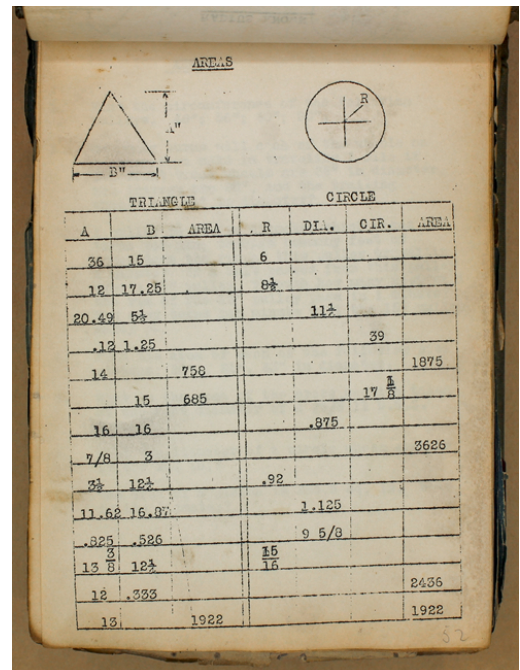 AREAS
A"
R
B"
TRIANGLE CIRCLE
A B AREA R DIA. CIR. AREA
36 15 6
12 17.25
20.49
.12 1.25 39
14 758 1875
15 685 17 1/8
16 16 .875
7/8 3 3626
.92
11.62 16.87 1.125
.825 .526 9 5/8
13 3/8 15/16
12 .333 2436
13 1922 1922
52